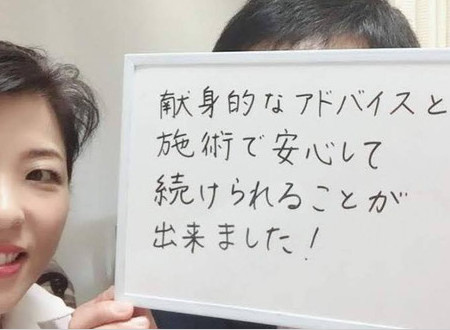 献身的なアドバイスと
施術で安心して
続けられることが
出来ました!